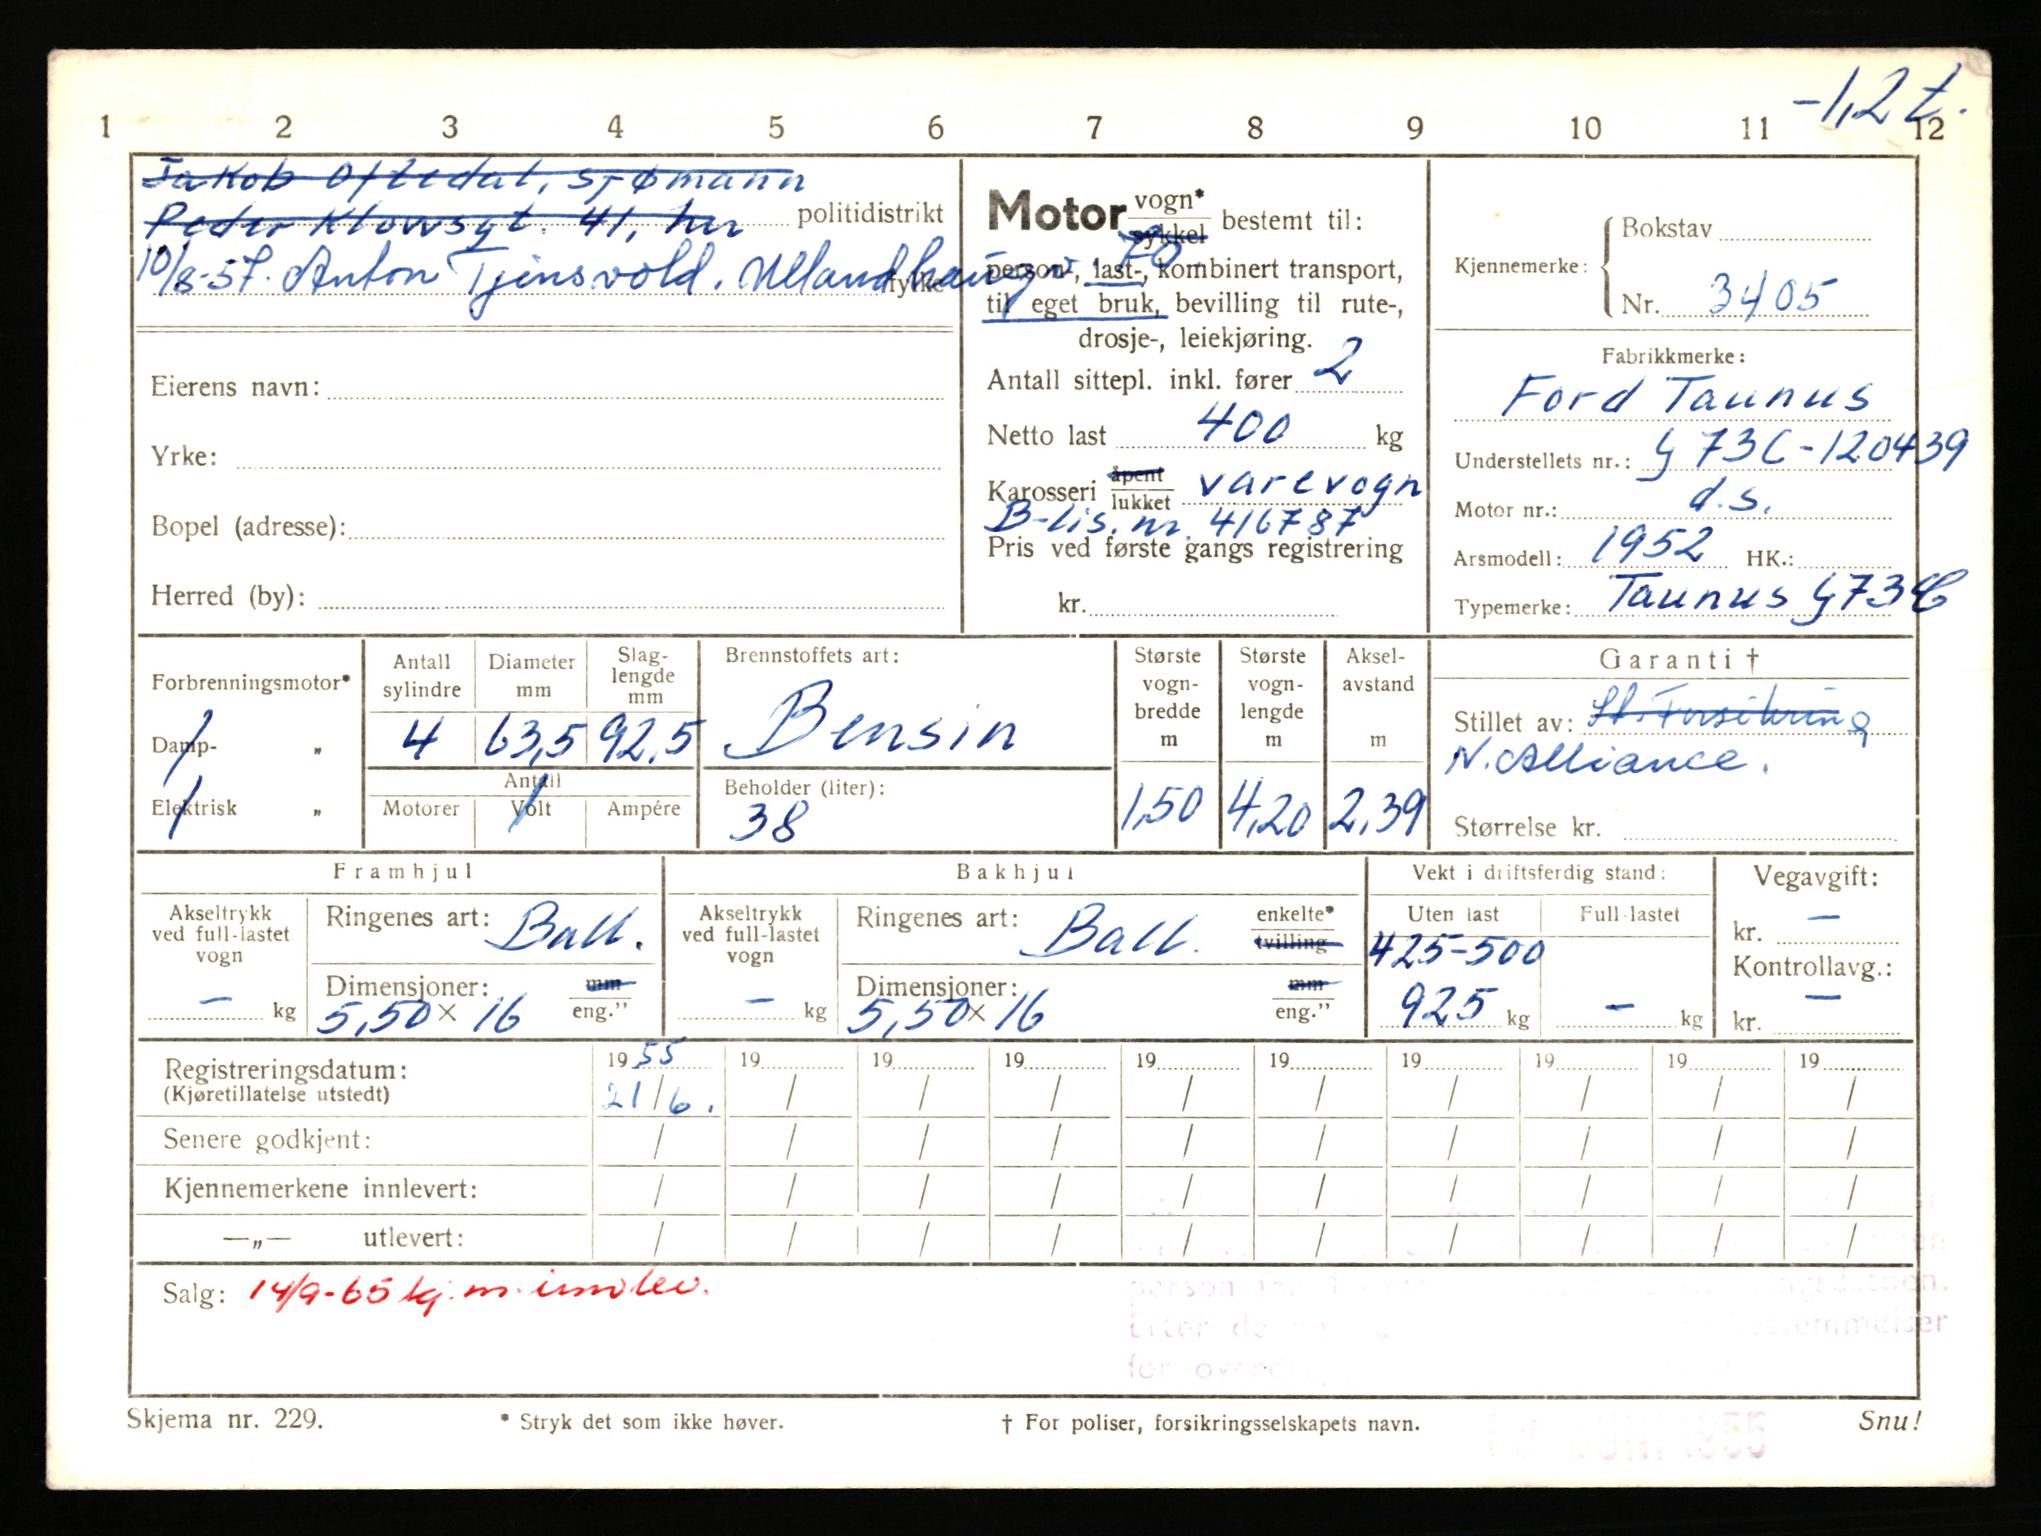 -1,2 t.
1 2 3 4 5 6 7 8 9 10 11 12
Jakob Oftedal, sjømann
Peder Klowsgt. 41, her politidistrikt
10/8-57. Anton Tjensvold. Ullandhaugv. 70. fylke
Eierens navn:
Yrke:
Bopel (adresse):
Herred (by):
Motor vogn* sykkel bestemt til:
person-, last-, kombinert transport,
til eget bruk, bevilling til rute-,
drosje-, leiekjøring.
Antall sittepl. inkl. fører 2
Netto last 400 kg
Karosseri åpent lukket varevogn
B-lis. nr. 416787
Pris ved første gangs registrering
kr.
Kjennemerke: Bokstav
Nr. 3405
Fabrikkmerke:
Ford Taunus
Understellets nr.: G 73C-120439
Motor nr.: d.s.
Arsmodell: 1952 HK.:
Typemerke: Taunus G73C
Forbrenningsmotor*
Damp- „
Elektrisk „
Antall sylindre 4
Diameter mm 63,5
Slag-lengde mm 92,5
Antall
Motorer Volt Ampére
Brennstoffets art:
Bensin
Beholder (liter):
38
Største vogn-bredde m 1,50
Største vogn-lengde m 4,20
Aksel-avstand m 2,39
Garanti †
Stillet av: St. Forsikring
N. Alliance.
Størrelse kr.
Framhjul
Akseltrykk ved full-lastet vogn – kg
Ringenes art: Ball.
Dimensjoner: mm
5,50 × 16 eng."
Bakhjul
Akseltrykk ved full-lastet vogn – kg
Ringenes art: Ball. enkelte* tvilling
Dimensjoner: mm
5,50 × 16 eng."
Vekt i driftsferdig stand:
Uten last Full-lastet
425-500
925 kg – kg
Vegavgift:
kr. –
Kontrollavg.:
kr. –
Registreringsdatum: 19 55 19 19 19 19 19 19 19 19 19
(Kjøretillatelse utstedt) 21/6. / / / / / / / / /
Senere godkjent: / / / / / / / / / /
Kjennemerkene innlevert: / / / / / / / / / /
—„— utlevert: / / / / / / / / / /
Salg: 14/9-65 kj. m. innlev.
Skjema nr. 229. * Stryk det som ikke høver. † For poliser, forsikringsselskapets navn. Snu!